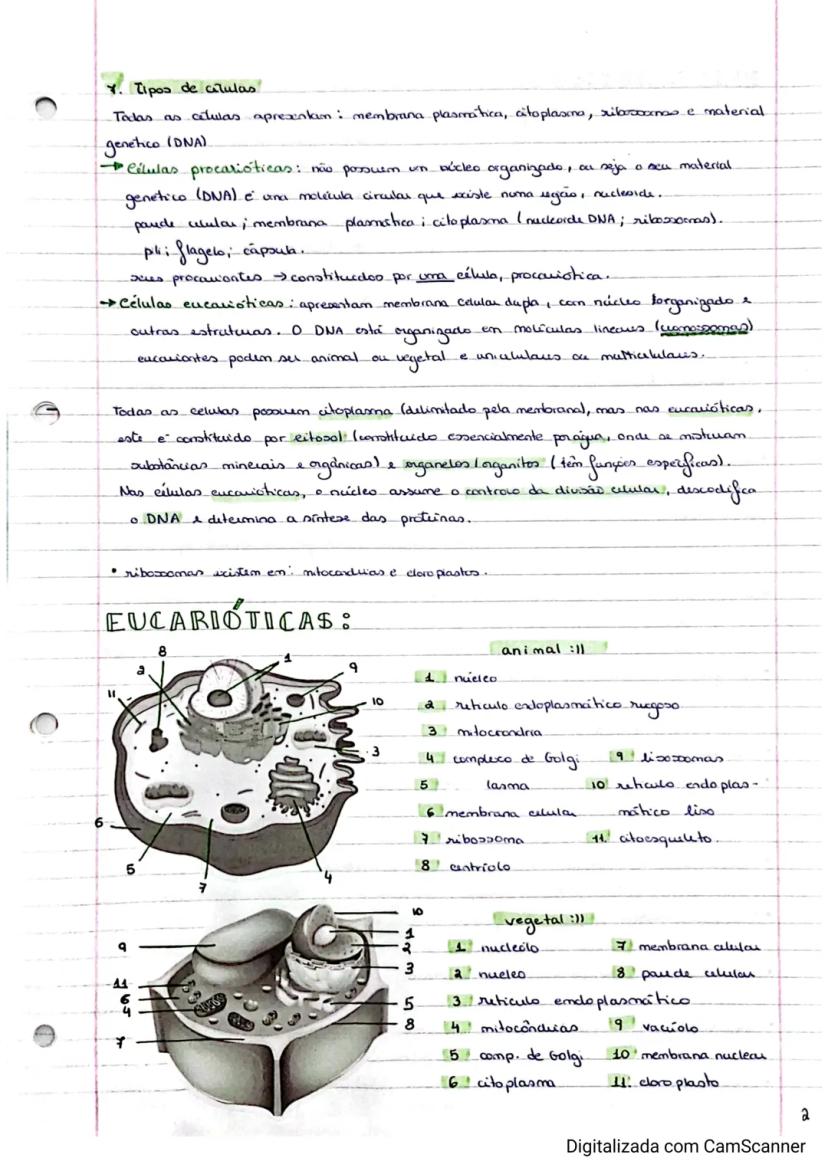 7. Tipos de células
Todas as células apresentam: membrana plasmática, citoplasma, ribossomas e material
genético (DNA)
→ Células procarióticas: não possuem um núcleo organizado, ou seja o seu material
genético (DNA) é uma molécula circular que existe numa região, nucleoide.
parede celular; membrana plasmática; citoplasma (nucleoide DNA; ribossomas).
pli; flagelo; cápsula.
seres procariontes → constituídos por uma célula, procariótica.
→ Células eucarióticas: apresentam membrana celular dupla, com núcleo organizado e
outras estruturas. O DNA está organizado em moléculas lineares (cromossomas)
eucariontes podem ser animal ou vegetal e unicelulares ou multicelulares.
Todas as celulas possuem citoplasma (delimitado pela membrana), mas nas eucarióticas,
este é constituído por citosol (constituído essencialmente por água, onde se misturam
substâncias minerais e orgânicas) e organelos/organitos (têm funções específicas).
Nas células eucarióticas, o núcleo assume o controlo da divisão celular, descodifica
o DNA e determina a síntese das proteínas.
• ribossomas existem em: mitocondrias e cloroplastos.
EUCARIÓTICAS:
animal :))
8
1
2
9
11
10
3
6
5
7
4
1 núcleo
2 retículo endoplasmático rugoso
3 mitocrondria
4 complexo de Golgi 9 lisossomas
5 lasma 10 retículo endoplas-
6 membrana celular mático liso
7 ribossoma 11. citoesqueleto.
8 centríolo
vegetal :))
10
9
1
2
3
11
6
4
5
8
7
1 nucleólo 7 membrana celular
2 nucleo 8 parede celular
3 retículo endoplasmático
4 mitocôndrias 9 vacúolo
5 comp. de Golgi 10 membrana nuclear
6 citoplasma 11. cloroplasto
2
Digitalizada com CamScanner